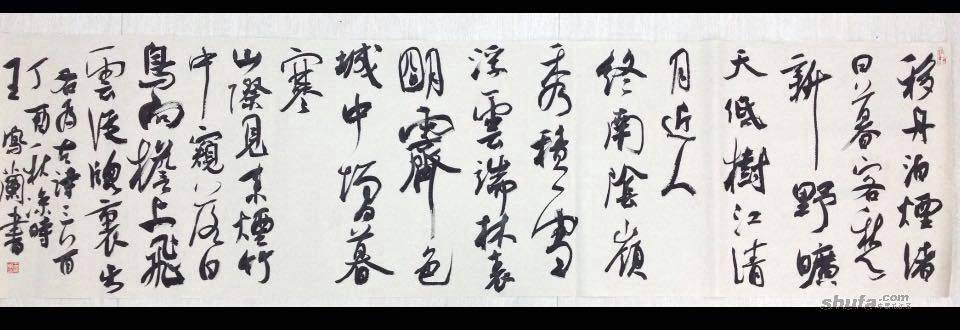 移舟泊煙渚
日暮客愁
新野曠
天低樹江清
月近人
終南陰嶺
秀積雪
浮雲端林表
明霽色
城中增暮
寒
山際見來煙竹
中窺落日
鳥向檐上飛
雲從牕裏出
右為古詩三首
丁酉秋深時
王鳳蘭書
shufa.com